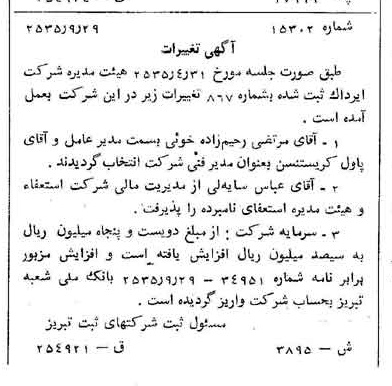 شماره ۱۵۳۰۲ ۲۵۳۵/۹/۲۹
آگهی تغییرات
طبق صورت جلسه مورخ ۲۵۳۵/۴/۳۱ هیئت مدیره شرکت
ایرداک ثبت شده بشماره ۸۶۷ تغییرات زیر در این شرکت بعمل
آمده است .
۱ – آقای مرتضی رحیم‌زاده خوئی بسمت مدیر عامل و آقای
پاول کریستنسن بعنوان مدیر فنی شرکت انتخاب گردیدند .
۲ – آقای عباس سایه‌لی از مدیریت مالی شرکت استعفاء
و هیئت مدیره استعفای نامبرده را پذیرفت .
۳ – سرمایه شرکت : از مبلغ دویست و پنجاه میلیون ریال
به سیصد میلیون ریال افزایش یافته است و افزایش مزبور
برابر نامه شماره ۳۴۹۵۱ – ۲۵۳۵/۹/۲۹ بانک ملی شعبه
تبریز بحساب شرکت واریز گردیده است .
مسئول ثبت شرکتهای ثبت تبریز
ش – ۳۸۹۵ ق – ۲۵۴۹۲۱